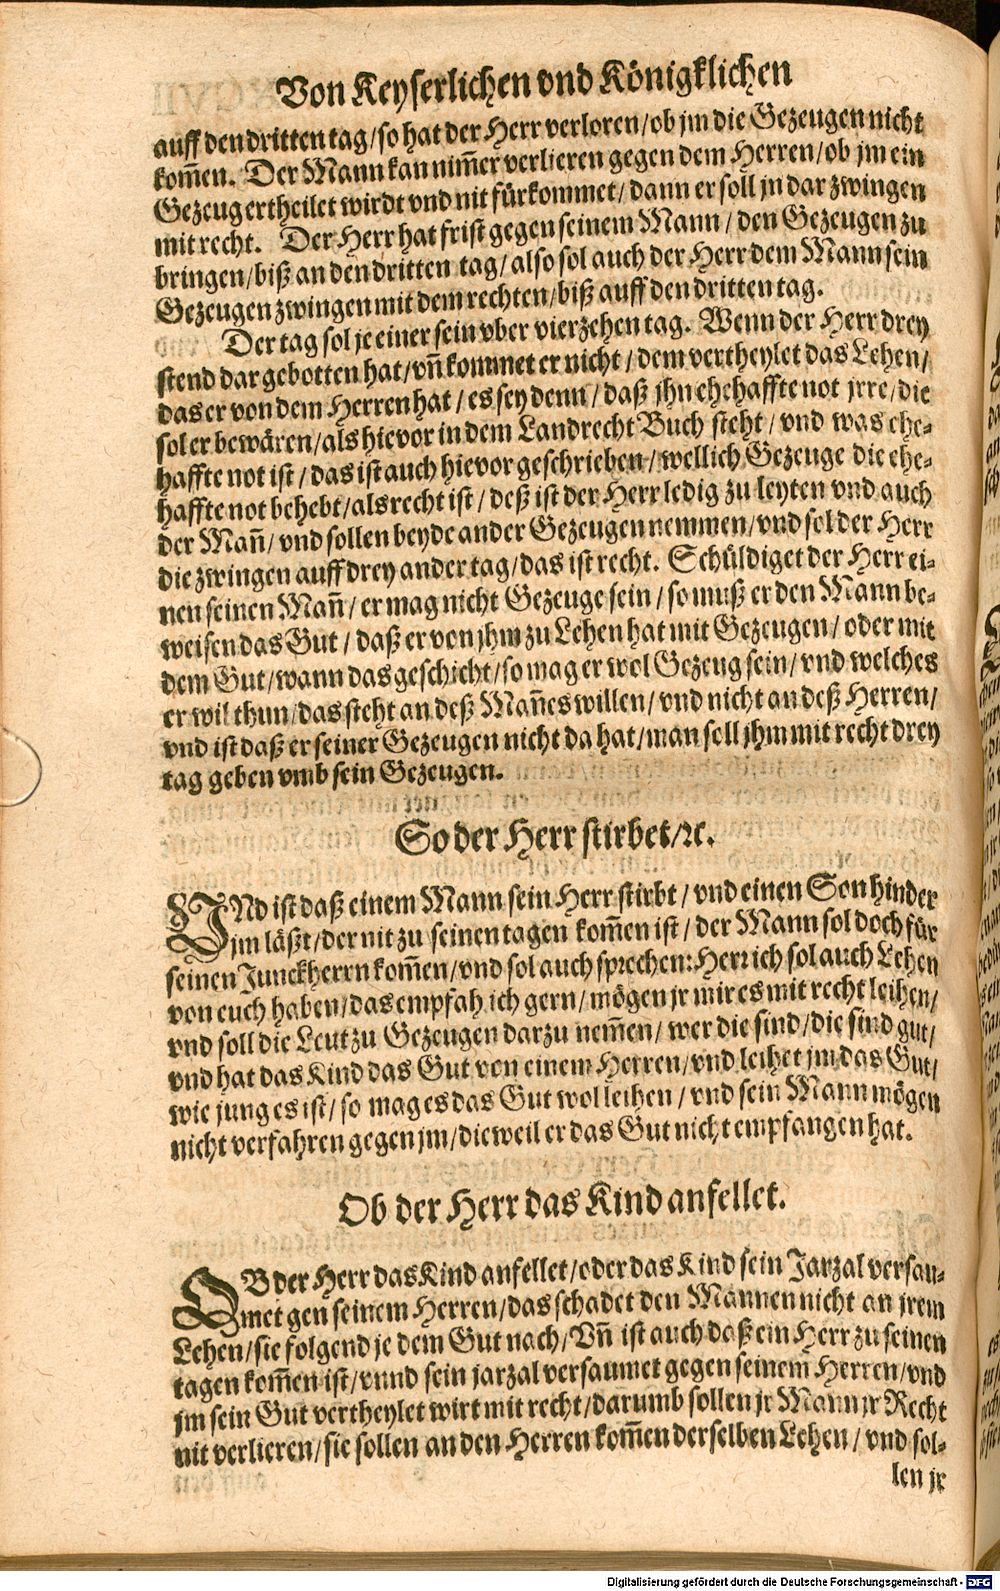 Von Keyserlichen vnd Königklichen
auff den dritten tag/so hat der Herr verloren/ob jm die Gezeugen nicht
kom̃en. Der Mann kan nim̃er verlieren gegen dem Herren/ob jm ein
Gezeug ertheilet wirdt vnd nit fürkommet/dann er soll jn dar zwingen
mit recht. Der Herr hat frist gegen seinem Mann/den Gezeugen zu
bringen/biß an den dritten tag/also sol auch der Herr dem Mann sein
Gezeugen zwingen mit dem rechten/biß auff den dritten tag.
Der tag sol je einer sein vber vierzehen tag. Wenn der Herr drey
stend dar gebotten hat/vñ kommet er nicht/dem vertheylet das Lehen/
das er von dem Herren hat/es sey denn/daß jhn ehehaffte not jrre/die
sol er bewären/als hievor in dem Landrecht Buch steht/vnd was ehe-
haffte not ist/das ist auch hievor geschrieben/wellich Gezeuge die ehe-
haffte not behebt/als recht ist/deß ist der Herr ledig zu leyten vnd auch
der Mañ/vnd sollen beyde ander Gezeugen nemmen/vnd sol der Herr
die zwingen auff drey ander tag/das ist recht. Schüldiget der Herr ei-
nen seinen Mañ/er mag nicht Gezeuge sein/so muß er den Mann be-
weisen das Gut/daß er von jhm zu Lehen hat mit Gezeugen/oder mit
dem Gut/wann das geschicht/so mag er wol Gezeug sein/vnd welches
er wil thun/das steht an deß Mañes willen/vnd nicht an deß Herren/
vnd ist daß er seiner Gezeugen nicht da hat/man soll jhm mit recht drey
tag geben vmb sein Gezeugen.
So der Herr stirbet/ꝛc.
VNd ist daß einem Mann sein Herr stirbt/vnd einen Son hinder
jm läßt/der nit zu seinen tagen kom̃en ist/der Mann sol doch für
seinen Junckherrn kom̃en/vnd sol auch sprechen: Herr ich sol auch Lehen
von euch haben/das empfah ich gern/mögen jr mir es mit recht leihen/
vnd soll die Leut zu Gezeugen darzu nem̃en/wer die sind/die sind gut/
vnd hat das Kind das Gut von einem Herren/vnd leihet jm das Gut/
wie jung es ist/so mag es das Gut wol leihen/vnd sein Mann mögen
nicht verfahren gegen jm/dieweil er das Gut nicht empfangen hat.
Ob der Herr das Kind anfellet.
OB der Herr das Kind anfellet/oder das Kind sein Jarzal versau-
met gen seinem Herren/das schadet den Mannen nicht an jrem
Lehen/sie folgend je dem Gut nach/Vñ ist auch daß ein Herr zu seinen
tagen kom̃en ist/vnnd sein jarzal versaumet gegen seinem Herren/vnd
jm sein Gut vertheylet wirt mit recht/darumb sollen jr Mann jr Recht
nit verlieren/sie sollen an den Herren kom̃en derselben Lehen/vnd sol-
len jr
Digitalisierung gefördert durch die Deutsche Forschungsgemeinschaft - DFG